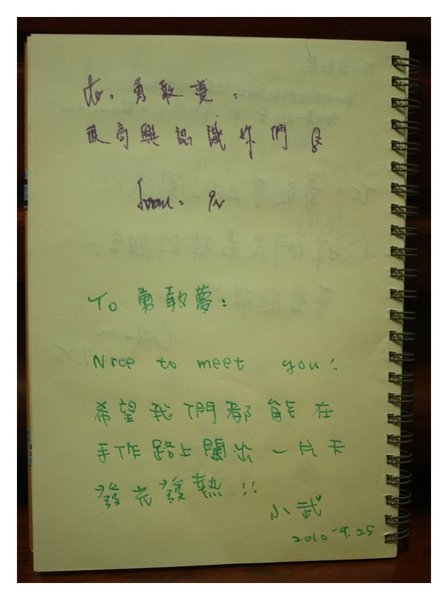 to. 勇敢夢：
很高興認識妳們
from.
To 勇敢夢：
Nice to meet you!
希望我們都能在
手作路上闖出一片天
發光發熱!!
小武
2010.9.25